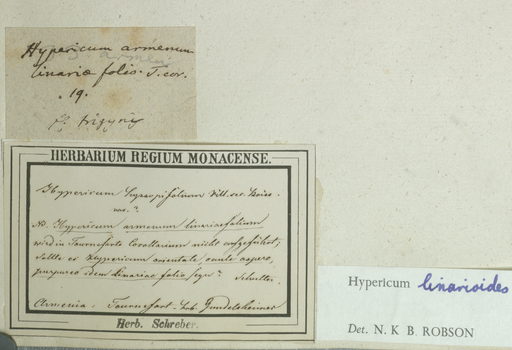 Hypericum armenum
linariæ folio. T. cor.
19.
trigynis
HERBARIUM REGIUM MONACENSE.
Hypericum hyssopifolium Vill. sec. Boiss.
var.?
NB. Hypericum armenum linariaefolium
wird in Tourneforts Corollarium nicht aufgeführt;
sollte es Hypericum orientale, caule aspero,
purpureo idem Linariae folio seyn? Schultes.
Armenia: Tournefort. Gundelsheimer
Herb. Schreber.
Hypericum linarioides
Det. N. K. B. ROBSON